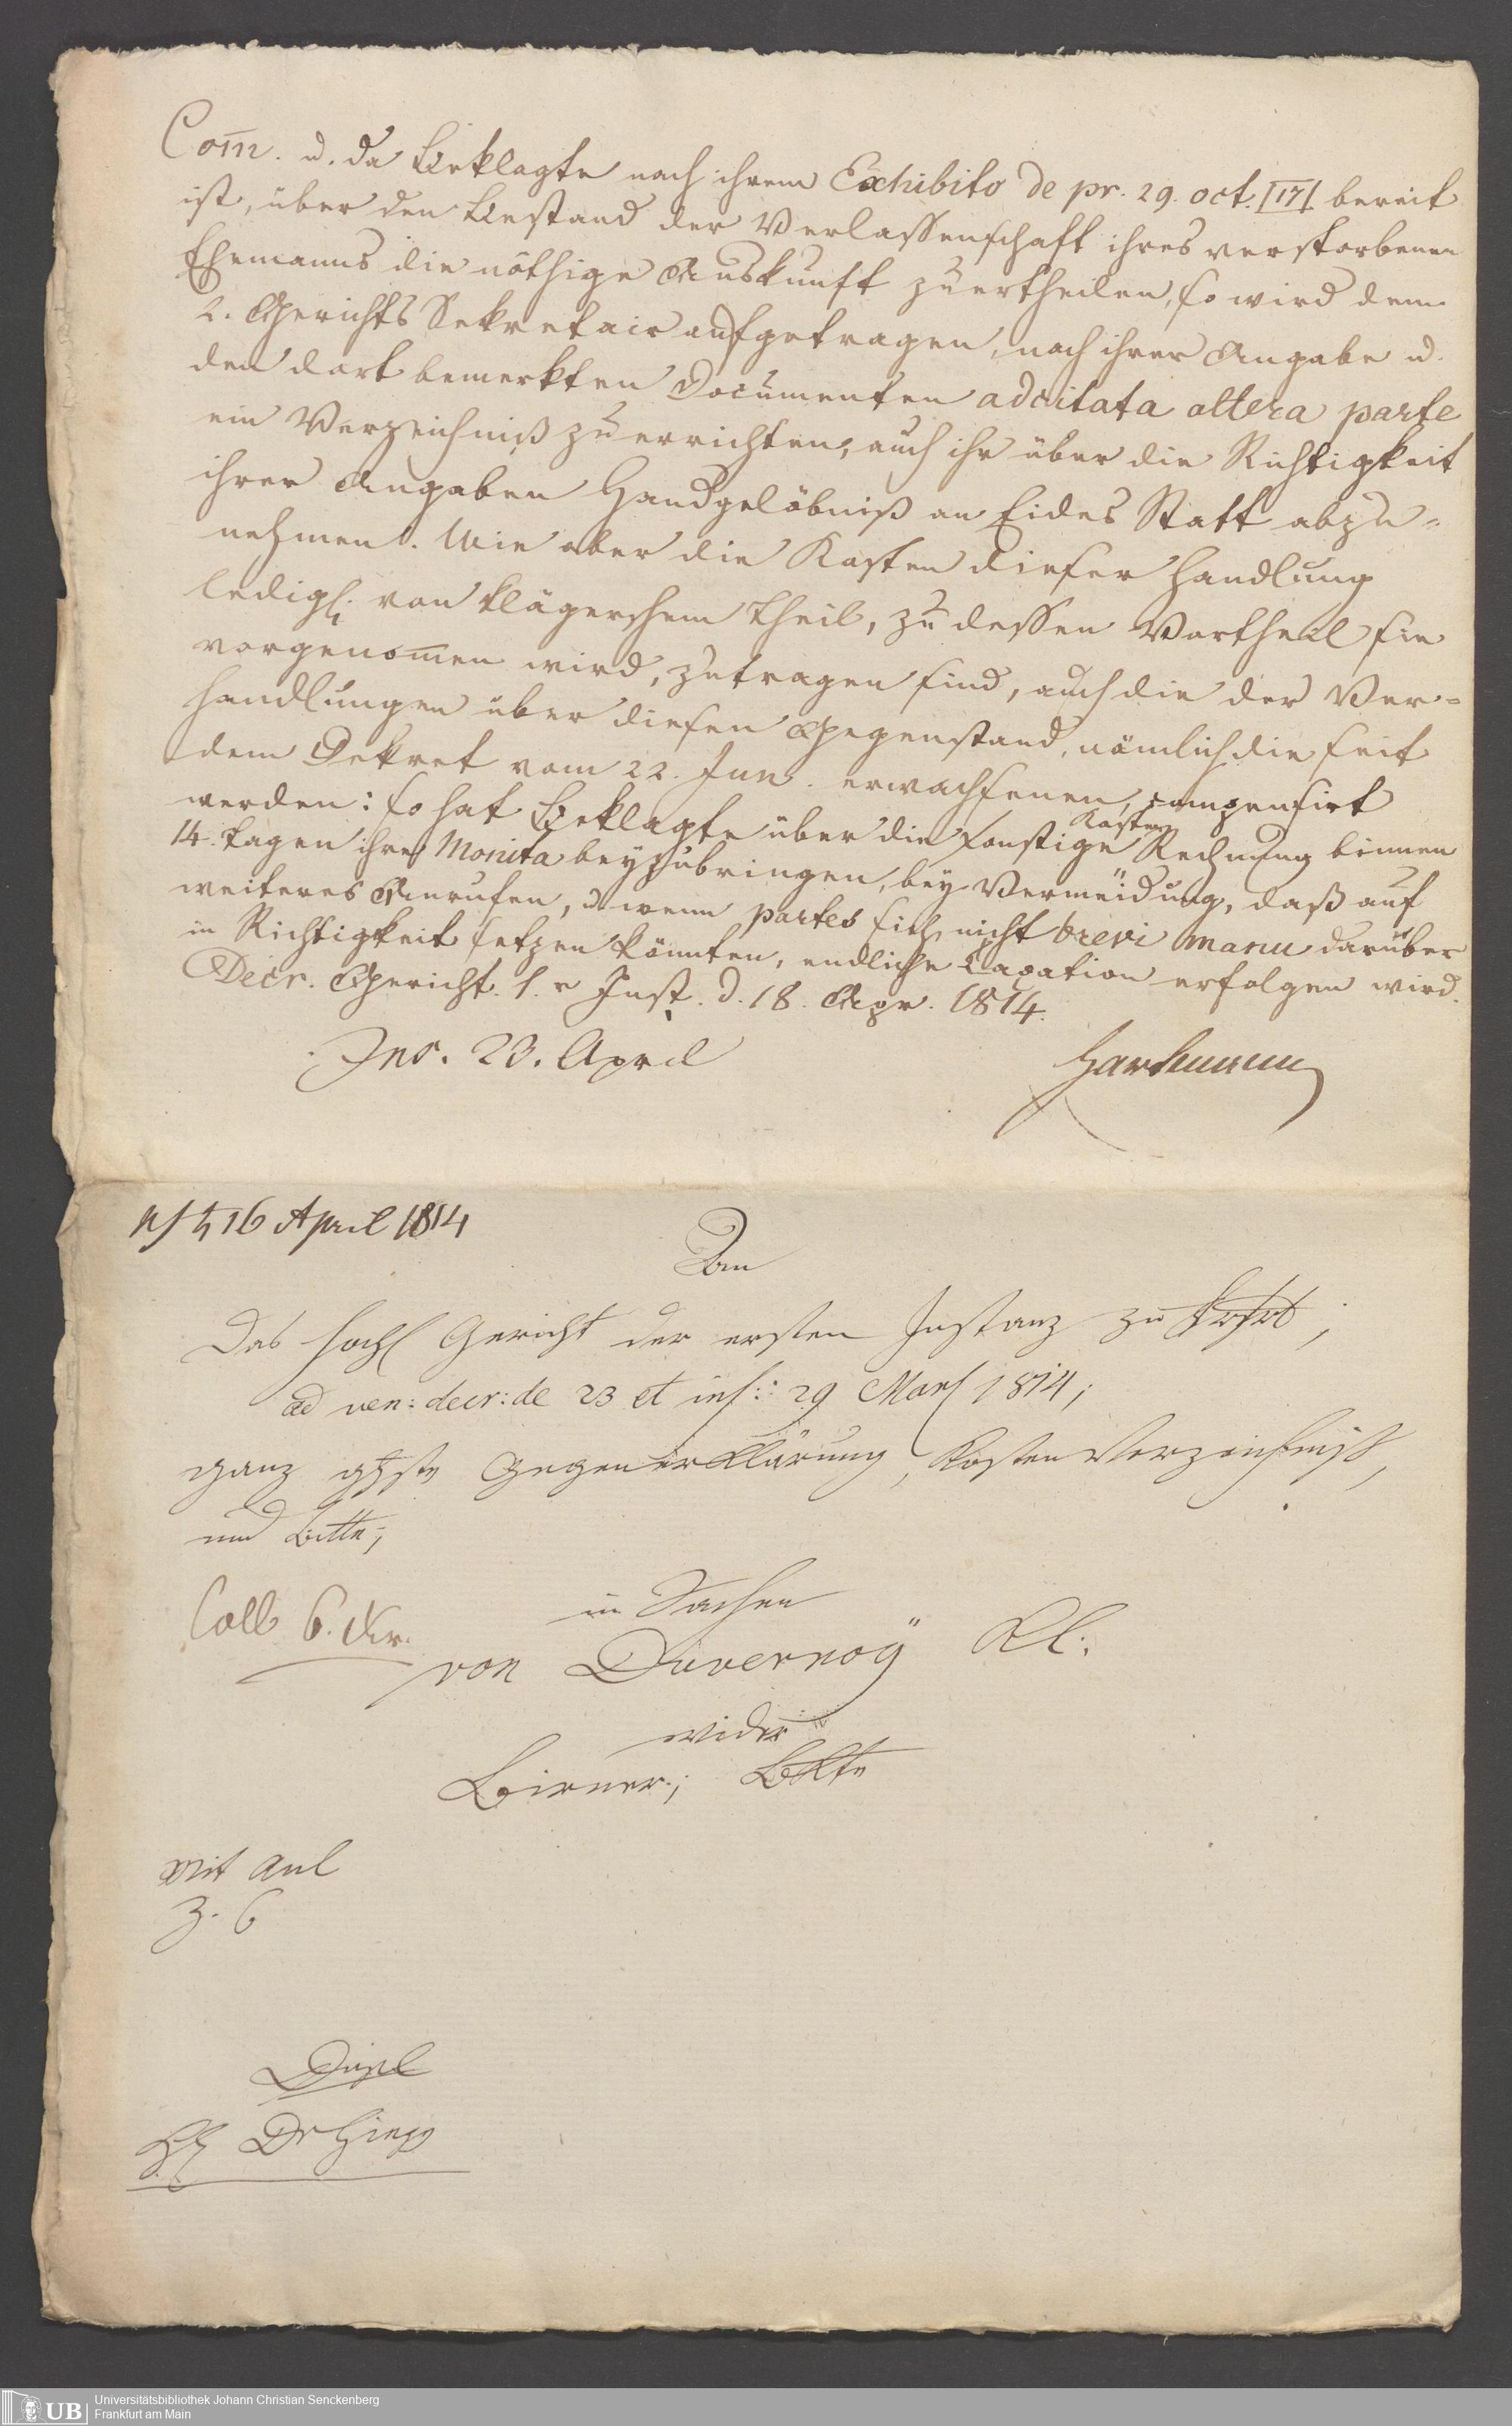 Com̅. u. da Beklagte nach ihrem Exhibito de pr. 29. oct. [17] bereit
ist, über den Bestand der Verlassenschaft ihres verstorbenen
Ehemanns die nöthige Auskunft zu ertheilen, so wird dem
2. Gerichts Sekretair aufgetragen, nach ihrer Angabe u.
den dort bemerkten Documenten adcitata altera parte
ein Verzeichniß zu errichten, auch ihr über die Richtigkeit
ihrer Angaben Handgelöbniß an Eides Statt abzu=
nehmen. Wie aber die Kosten dieser Handlung
ledigl. von klägerschem Theil, zu dessen Vortheil sie
vorgenom̅en wird, zu tragen sind, auch die der Ver=
handlungen über diesen Gegenstand, nämlich die seit
dem Dekret vom 22. Jun. erwachsenen, compensirt
werden: so hat Beklagte über die sonstige Kosten Rechnung binnen
14. Tagen ihre Monita beyzubringen, bey Vermeidung, daß auf
weiteres Anrufen, u. wenn partes sich nicht brevi manu darüber
in Richtigkeit setzen könnten, endliche Taxation erfolgen wird.
Decr. Gericht. 1.r Inst. d. 18. Apr. 1814.
Ins. 23. April
Hartmann
ps ♄ 16 April 1814
An
Das hochl Gericht der ersten Instanz zu Frfrt;
ad ven: decr: de 23 et ins: 29 Mart 1814;
ganz ghste Gegenerklärung, Kosten Verzeichniß,
und Bitte;
in Sachen
Coll 6. Kr.
von Duvernoÿ Kl.
wider
Birner; Bklte
Mit Anl
Z. 6
Dupl
Dr
UB
Universitätsbibliothek Johann Christian Senckenberg
Frankfurt am Main